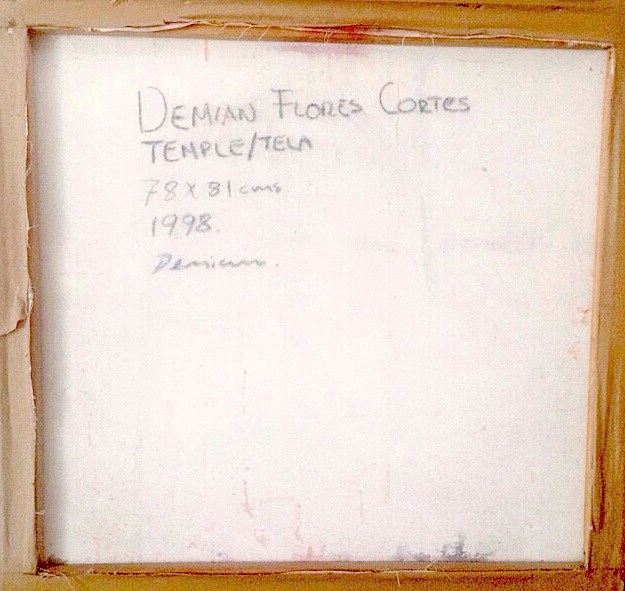 DEMIAN FLORES CORTES
TEMPLE/TELA
78 X 81 cms
1998.
Demian.